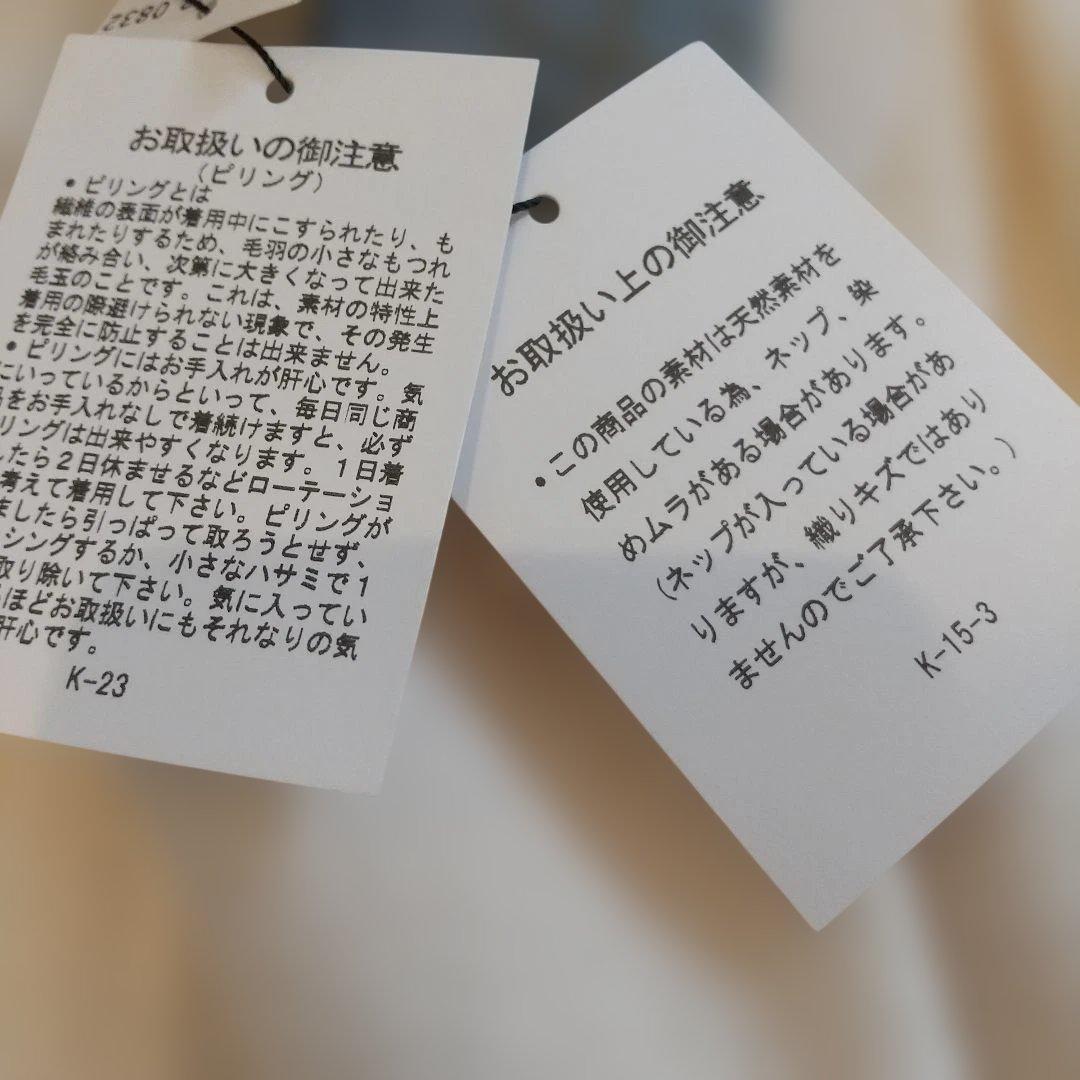 0832
お取扱いの御注意
(ピリング)
・ピリングとは
繊維の表面が着用中にこすられたり、も
まれたりするため、毛羽の小さなもつれ
が絡み合い、次第に大きくなって出来た
毛玉のことです。これは、素材の特性上
着用の際避けられない現象で、その発生
を完全に防止することは出来ません。
・ピリングにはお手入れが肝心です。気
にいっているからといって、毎日同じ商
をお手入れなしで着続けますと、必ず
リングは出来やすくなります。1日着
したら2日休ませるなどローテーショ
考えて着用して下さい。ピリングが
ましたら引っぱって取ろうとせず、
シングするか、小さなハサミで1
取り除いて下さい。気に入ってい
ほどお取扱いにもそれなりの気
肝心です。
K-23
お取扱い上の御注意
・この商品の素材は天然素材を
使用している為、ネップ、染
めムラがある場合があります。
(ネップが入っている場合があ
りますが、織りキズではあり
ませんのでご了承下さい。)
K-15-3